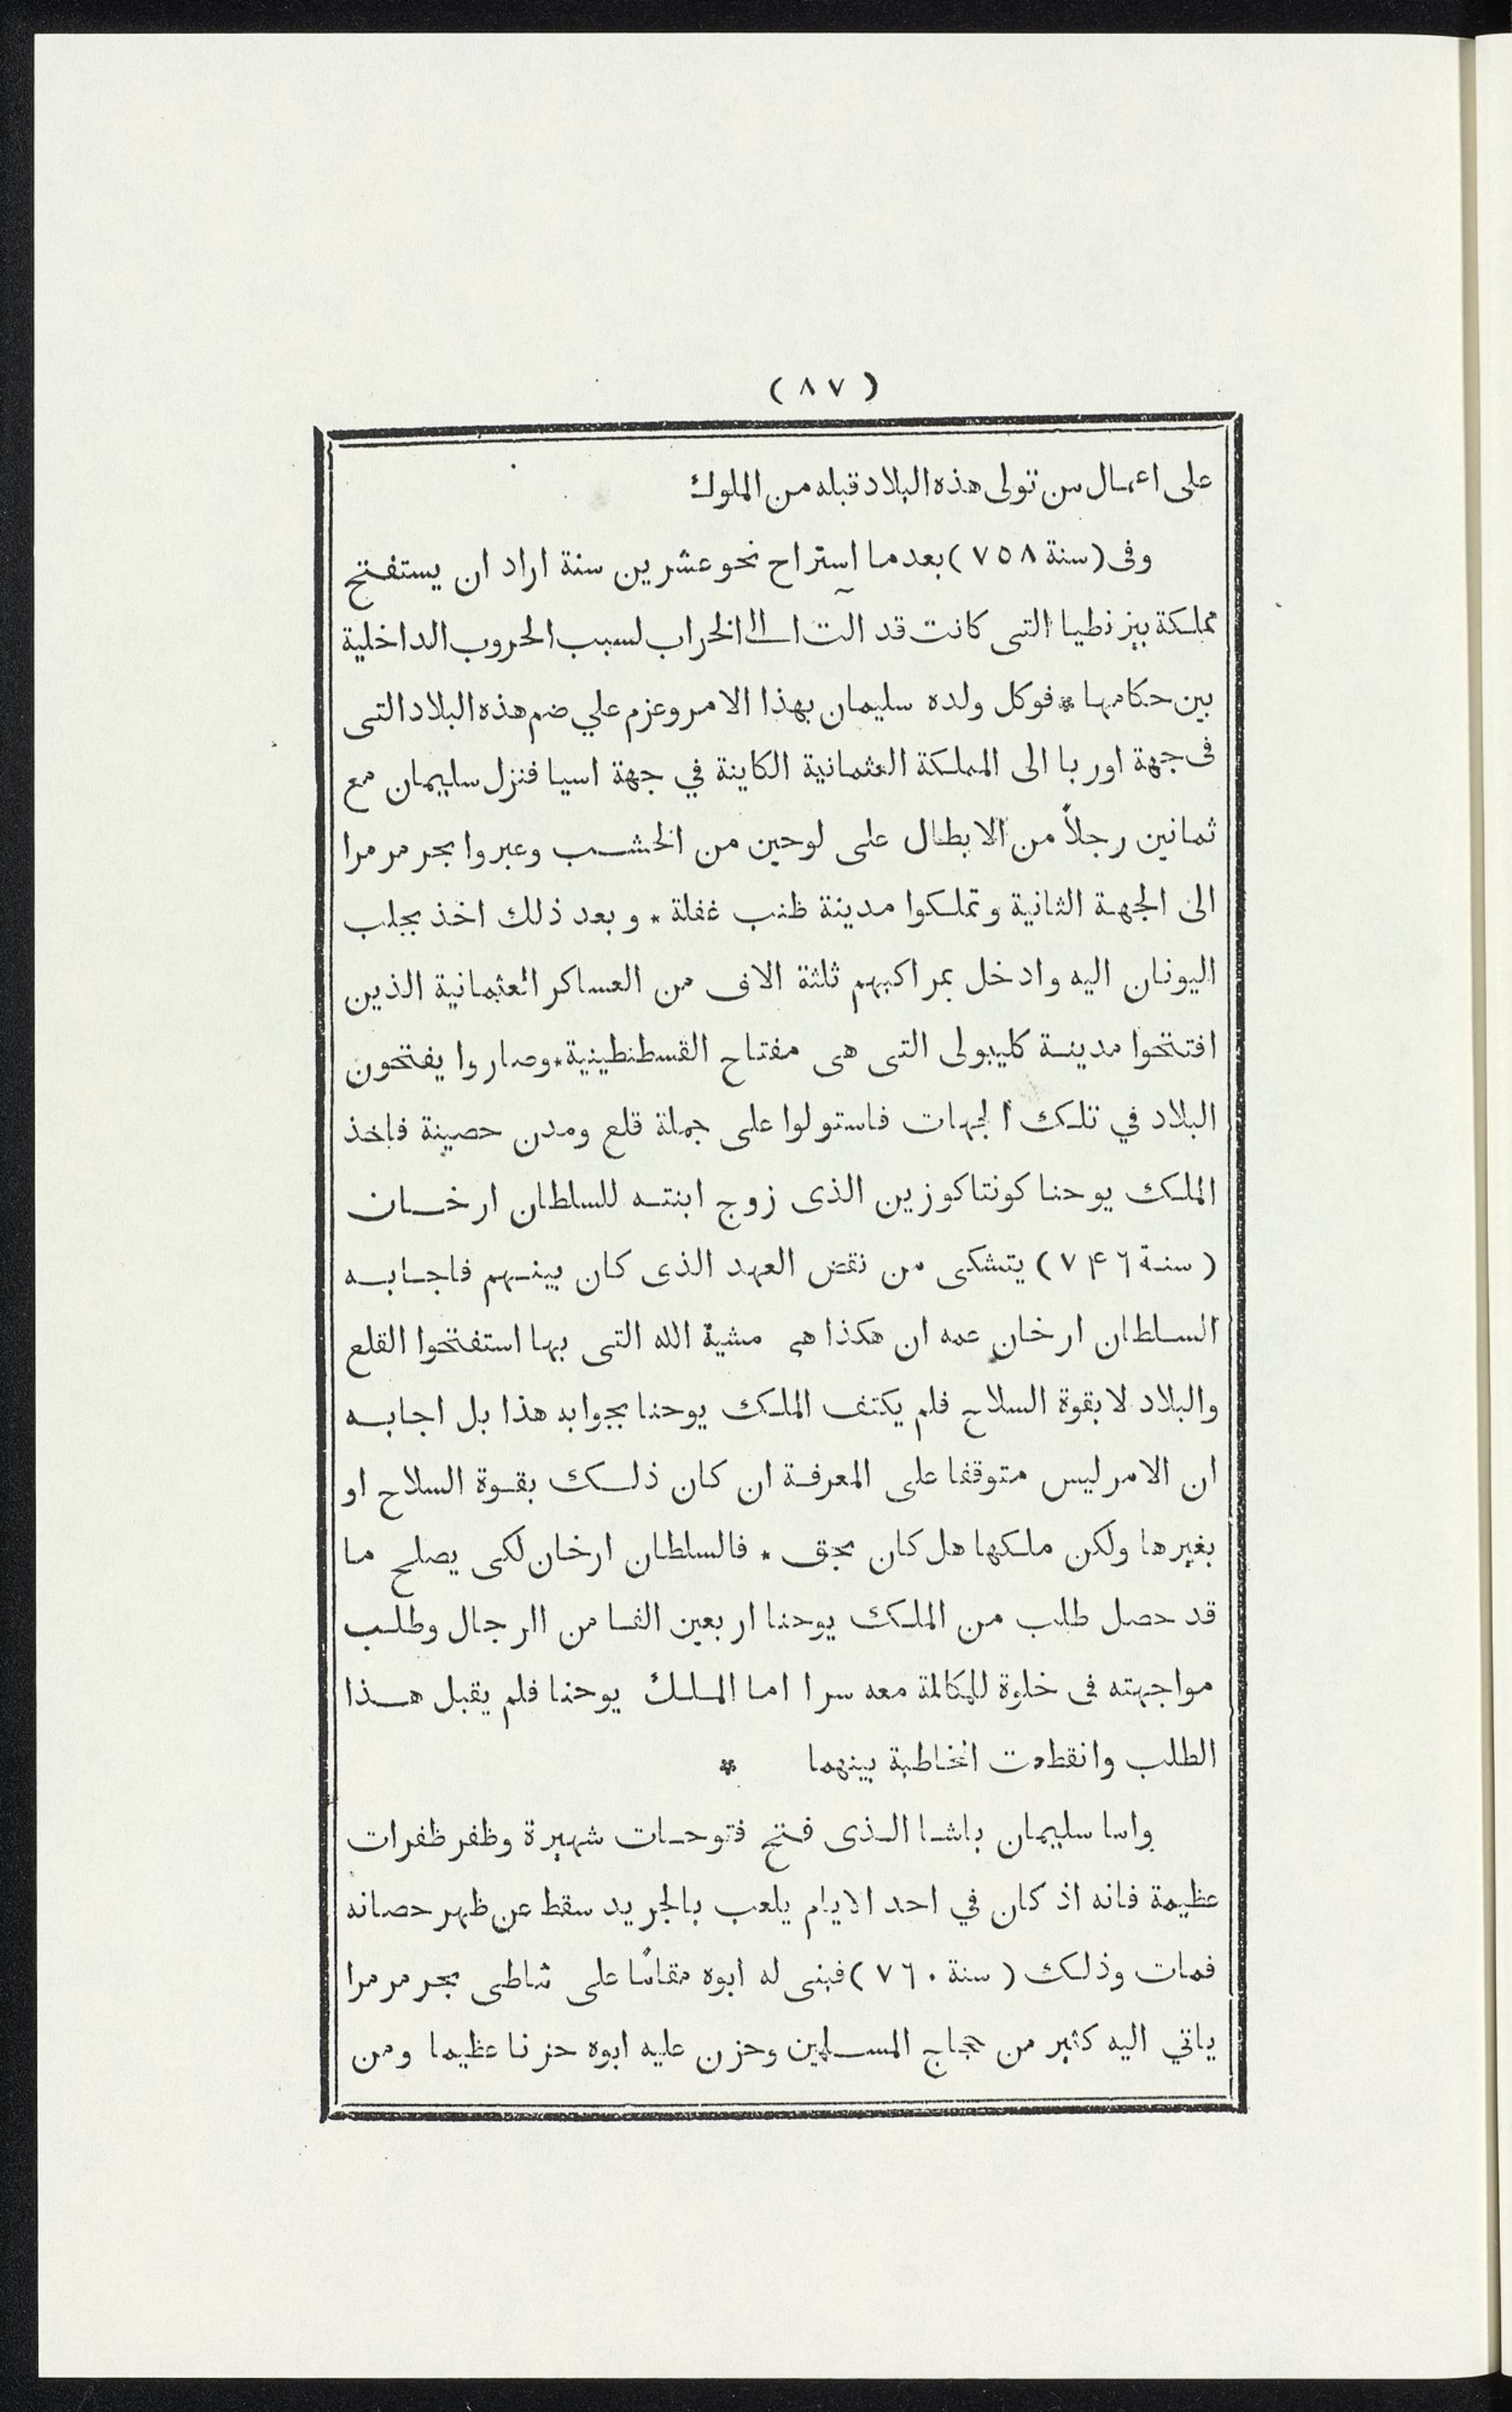 ( ٨٧ )
على اعمال من تولى هذه البلاد قبله من الملوك
وفى (سنة ٧٥٨) بعد ما استراح نحو عشرين سنة اراد ان يستفتح
مملكة بيزنطيا التى كانت قد آلت الى الخراب لسبب الحروب الداخلية
بين حكامها * فوكل ولده سليمان بهذا الامر وعزم علي ضم هذه البلاد التى
فى جهة اوربا الى المملكة العثمانية الكاينة في جهة اسيا فنزل سليمان مع
ثمانين رجلاً من الابطال على لوحين من الخشب وعبروا بحر مرمرا
الى الجهة الثانية وتملكوا مدينة ظنب غفلة * وبعد ذلك اخذ يجلب
اليونان اليه وادخل بمراكبهم ثلثة الاف من العساكر العثمانية الذين
افتتحوا مدينة كليبولى التى هى مفتاح القسطنطينية * وصاروا يفتحون
البلاد في تلك الجهات فاستولوا على جملة قلع ومدن حصينة فاخذ
الملك يوحنا كونتاكوزين الذى زوج ابنته للسلطان ارخان
(سنة ٧۴٦) يتشكى من نقض العهد الذى كان بينهم فاجابه
السلطان ارخان عمه ان هكذا هى مشية الله التى بها استفتحوا القلع
والبلاد لا بقوة السلاح فلم يكتف الملك يوحنا بجوابه هذا بل اجابه
ان الامر ليس متوقفا على المعرفة ان كان ذلك بقوة السلاح او
بغيرها ولكن ملكها هل كان بحق * فالسلطان ارخان لكى يصلح ما
قد حصل طلب من الملك يوحنا اربعين الفا من الرجال وطلب
مواجهته فى خلوة للمكالمة معه سرا اما الملك يوحنا فلم يقبل هذا
الطلب وانقطعت المخاطبة بينهما *
واما سليمان باشا الذى فتح فتوحات شهيرة وظفر ظفرات
عظيمة فانه اذ كان في احد الايام يلعب بالجريد سقط عن ظهر حصانه
فمات وذلك (سنة ٧٦٠) فبنى له ابوه مقامًا على شاطى بحر مرمرا
ياتي اليه كثير من حجاج المسلمين وحزن عليه ابوه حزنا عظيما ومن